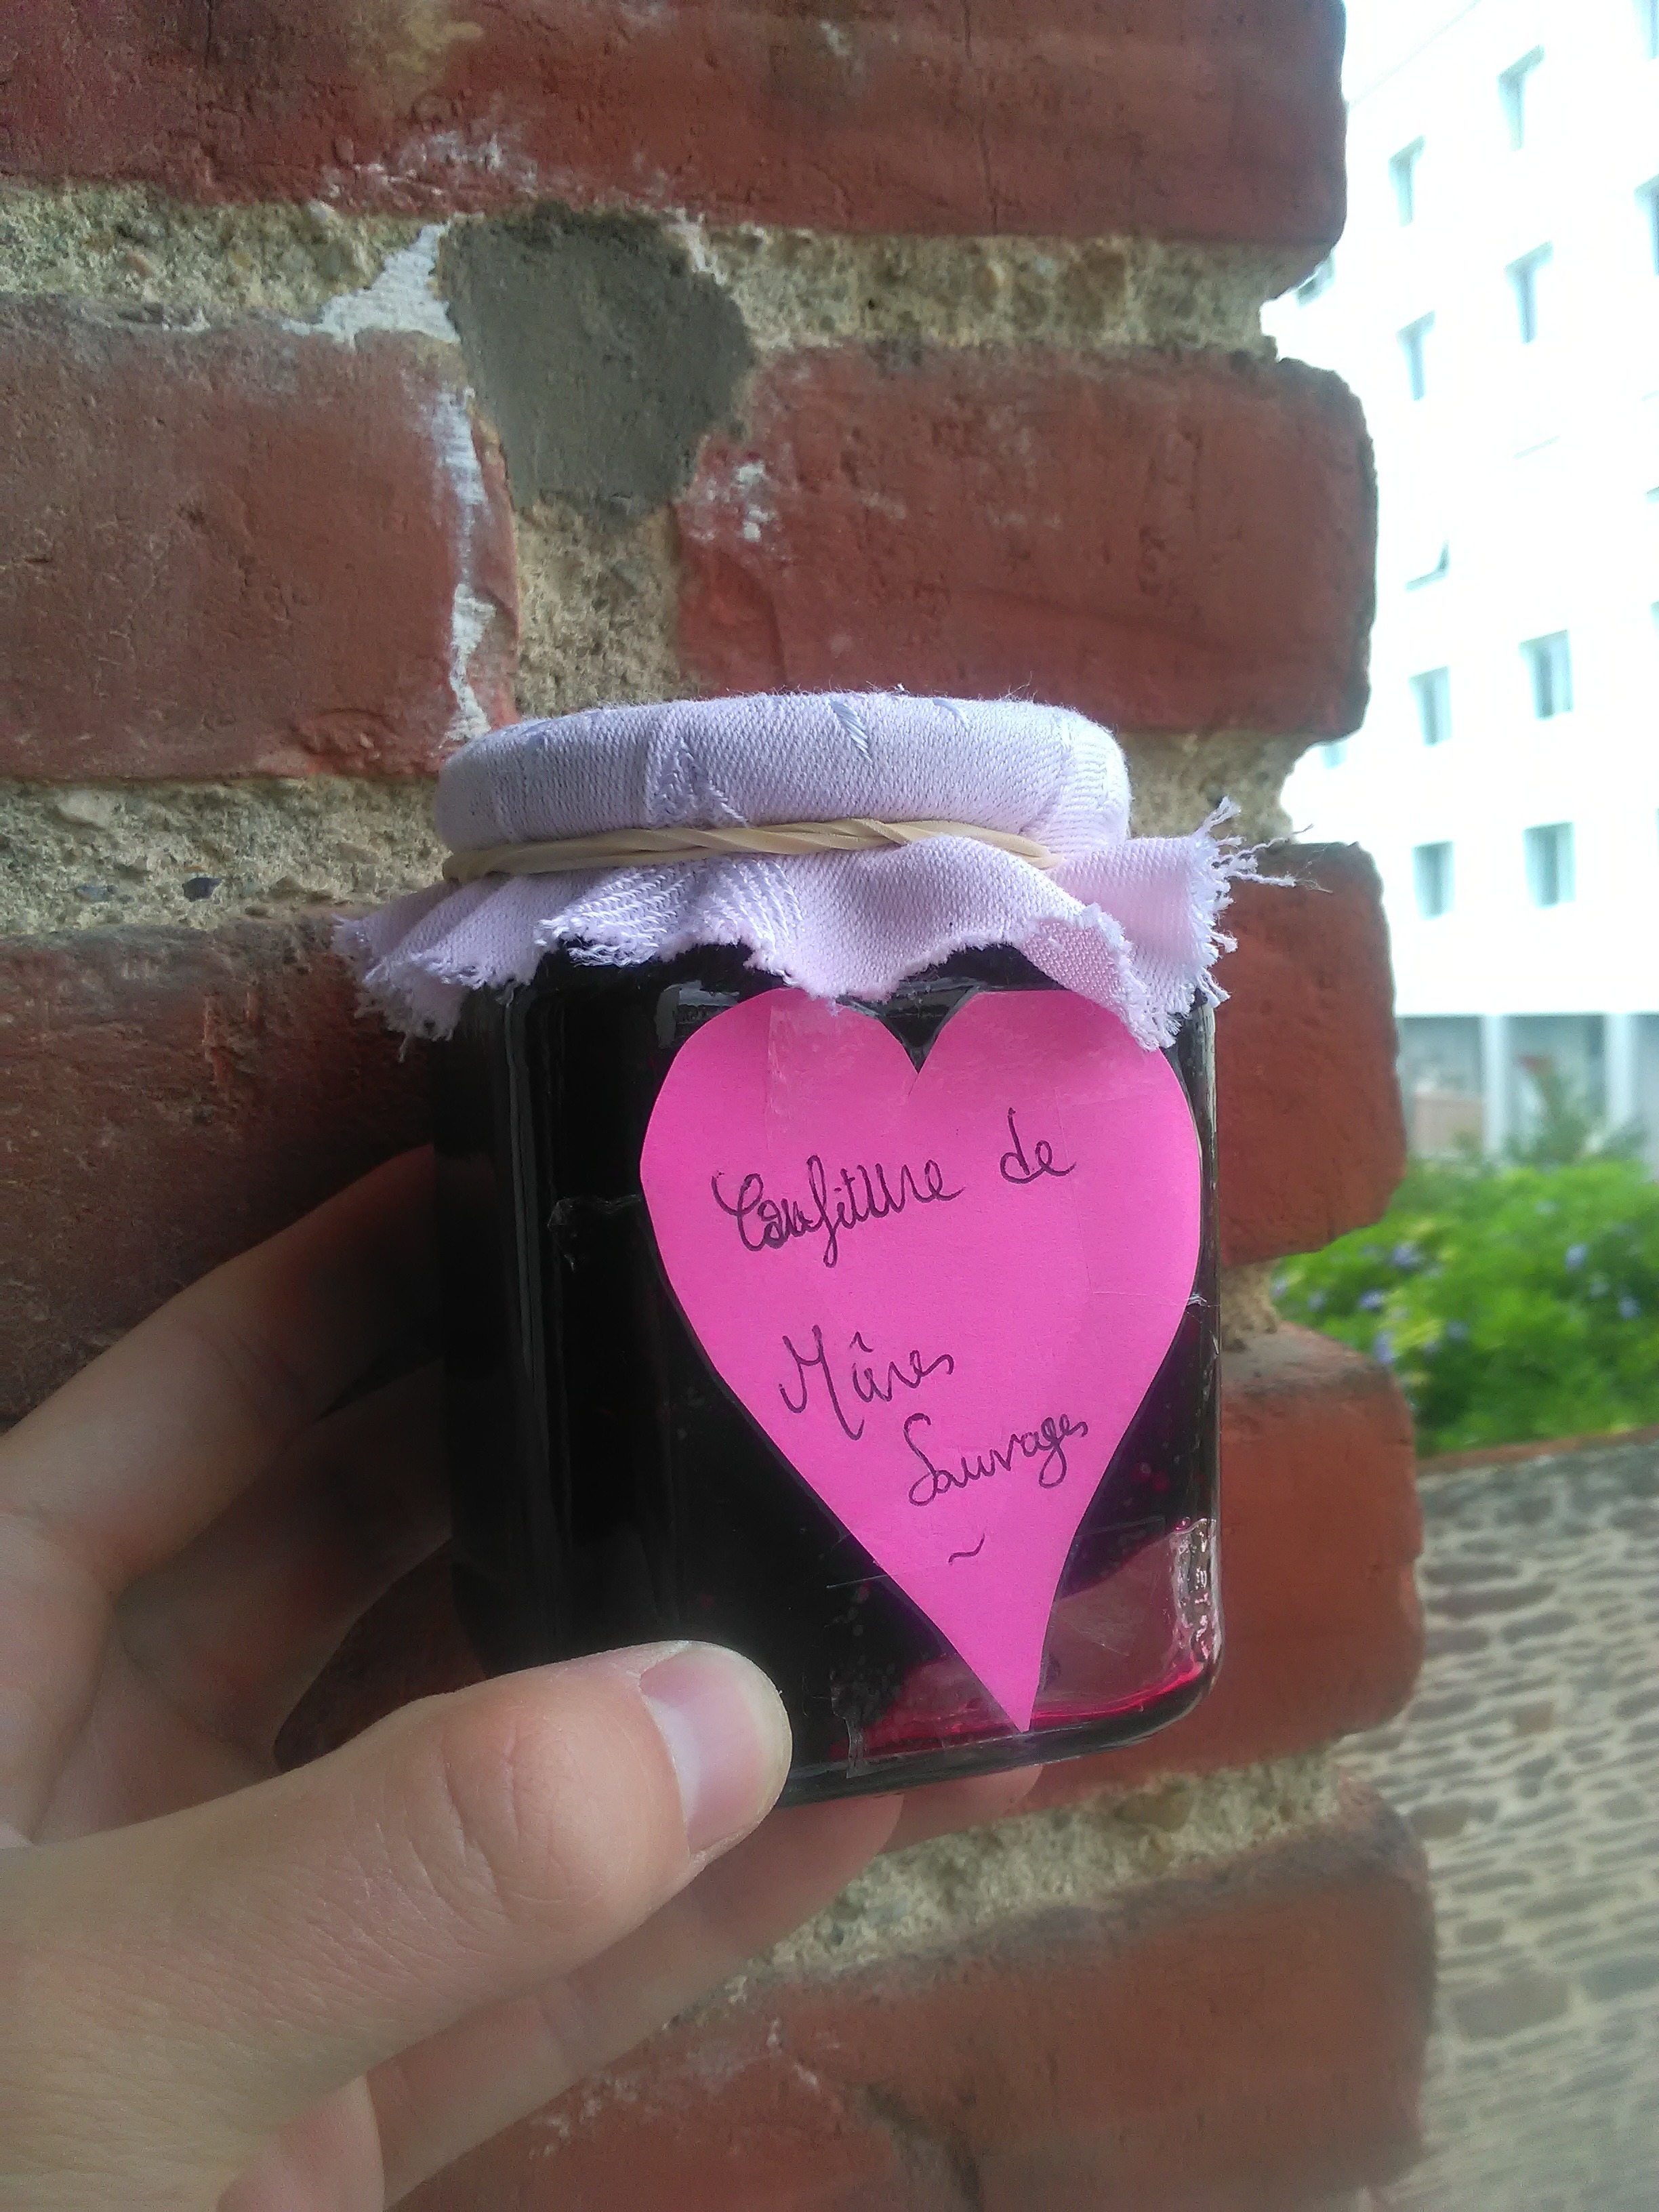 Confiture de
Mûres
Sauvages
~